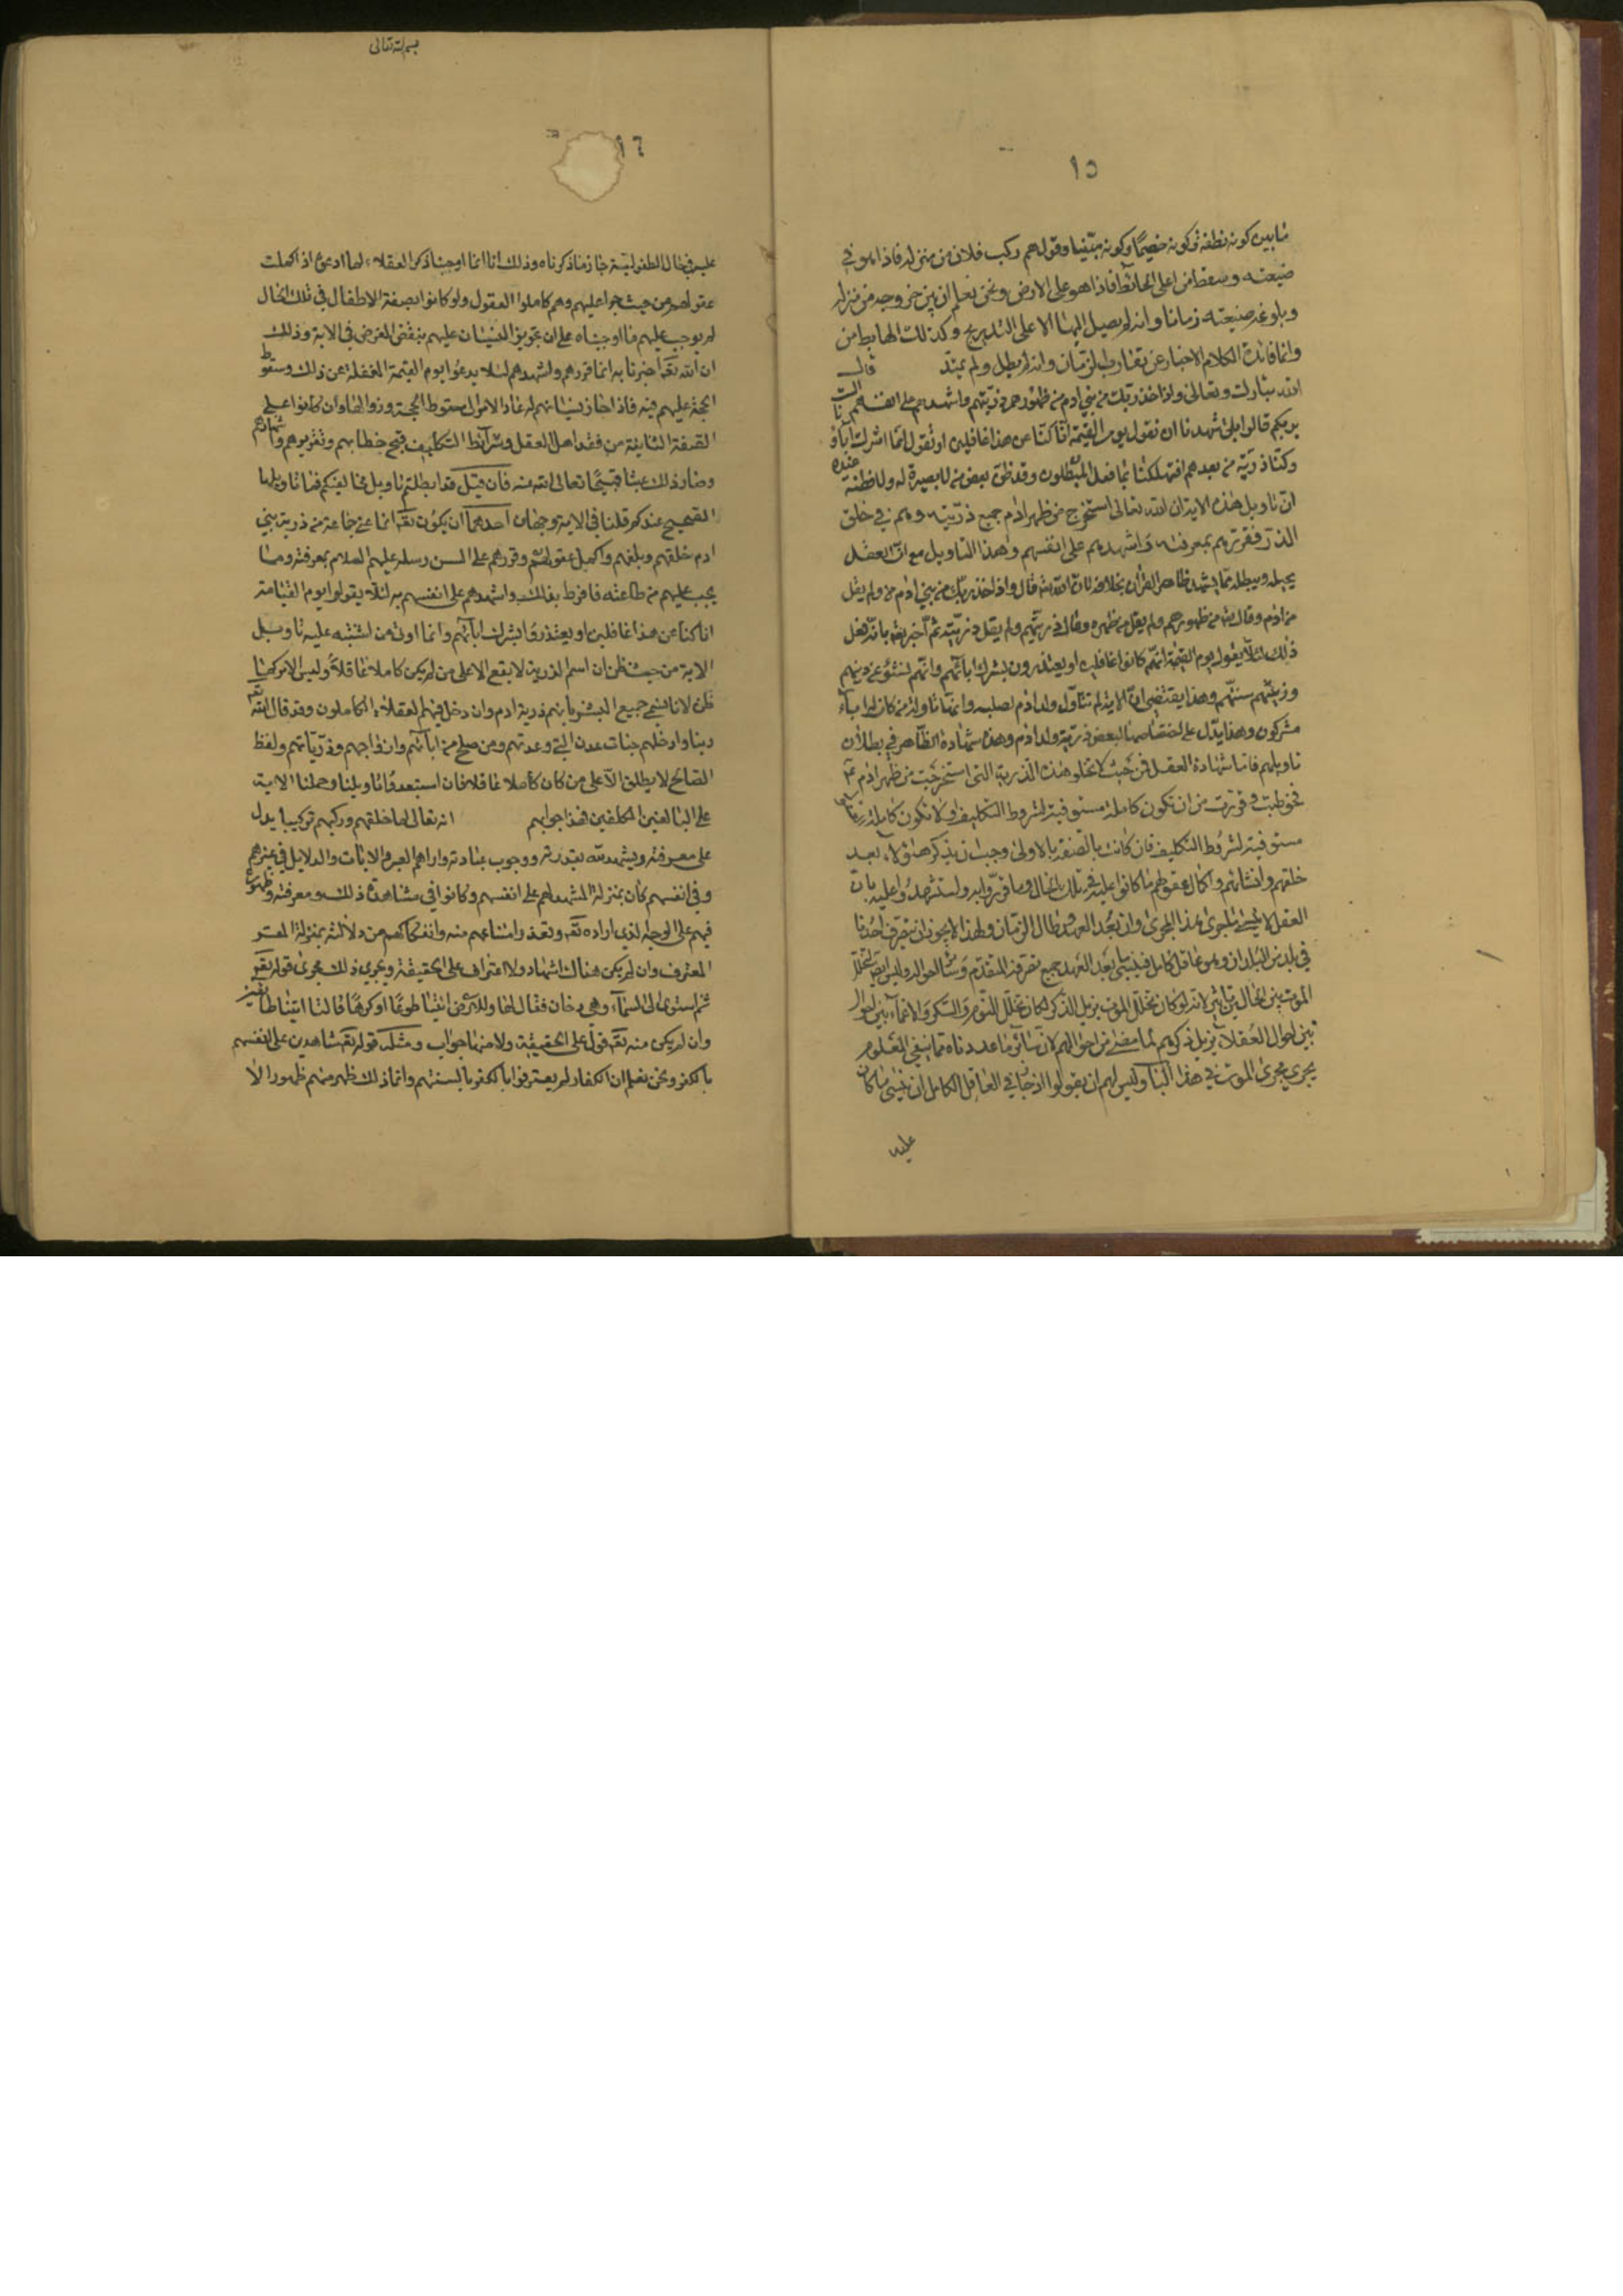 ١٥
ما بين كونه نطفة وكونه خصيمًا وكونه مبينا وقولهم ركب فلان من منزله فاذا هو في
ضيعته وسقط من اعلى الحائط فاذا هو على الارض ونحن نعلم ان بين خروجه من منزله
وبلوغه ضيعته زمانا وانه لم يصل اليها الا على التدريج وكذلك الهابط من
وانما فائدة الكلام الاخبار عن تقارب الزمان وانه لم يطل ولم يمتد قال
الله تبارك وتعالى واذ اخذ ربك من بني ادم من ظهورهم ذريتهم واشهدهم على انفسهم الست
بربكم قالوا بلى شهدنا ان تقولوا يوم القيمة انا كنا عن هذا غافلين او تقولوا انما اشرك اباؤنا
وكنا ذرية من بعدهم افتهلكنا بما فعل المبطلون وقد ظن بعض من لا بصيرة له ولا فطنة عنده
ان تاويل هذه الاية ان الله تعالى استخرج من ظهر ادم جميع ذريته وهم في خلق
الذر فقررهم بمعرفته واشهدهم على انفسهم وهذا التاويل مع ان العقل
يحيله ويبطله مما يشهد ظاهر القرآن بخلافه لان الله تعالى قال واذ اخذ ربك من بني ادم ولم يقل
من ادم وقال من ظهورهم ولم يقل من ظهره وقال ذريتهم ولم يقل ذريته ثم اخبر تعالى بانه فعل
ذلك لئلا يقولوا يوم القيمة انهم كانوا غافلين او يعتذرون بشرك ابائهم وانهم نشئوا على دينهم
وسنتهم وهذا يقتضي ان الاية لم تتناول ولد ادم لصلبه وانما تناولت من كان له اباء
مشركون وهذا يدل على اختصاصها لبعض ذرية ولد ادم وهذه شهادة الظاهر في بطلان
تاويلهم فاما شهادة العقل فمن حيث لا تخلو هذه الذرية التي استخرجت من ظهر ادم
فخوطبت وقررت من ان تكون كاملة مستوفية لشروط التكليف او لا تكون كاملة
مستوفية لشروط التكليف فان كانت بالصفة الاولى وجب ان يذكر هؤلاء بعد
خلقهم وانشائهم واكمال عقولهم ما كانوا عليه في تلك الحال وما قرروا به واستشهدوا عليه بان
العقل لا ينسى ما يجري هذا المجرى وان بعد العهد وطال الزمان ولهذا لا يجوز ان يتصرف احدنا
في بلد من البلدان وهو عاقل كامل فينسى بعد العهد جميع تصرفه المتقدم وسائر احواله وليس ايضا لتخلل
الموت بين الحالين تاثير لانه لو كان تخلل الموت يزيل الذكر لكان تخلل النوم والسكر والاغماء
بين احوال العقلاء يزيل ذكرهم لما مضى من احوالهم لان سائر ما عددناه مما ينفي العلوم
يجري مجرى الموت في هذا الباب وليس لهم ان يقولوا اذا جاز في العاقل الكامل ان ينسى ما كان
عليه
بسم الله تعالى
١٦
عليه في حال الطفولية جاز ما ذكرناه وذلك انا انما اوجبنا ذكر العقلاء لما ادعوه اذا كملت
عقولهم من حيث جرى عليهم وهم كاملوا العقول ولو كانوا بصفة الاطفال في تلك الحال
لم نوجب عليهم ما اوجبناه على ان تجويز النسيان عليهم ينقض الغرض في الاية وذلك
ان الله تعالى اخبرنا بانه انما قررهم واشهدهم لئلا يدعوا يوم القيمة الغفلة عن ذلك وسقوط
الحجة عليهم فيه فاذا جاز نسيانهم له عاد الامر الى سقوط الحجة وزوالها وان كانوا على
الصفة الثانية من فقد اهل العقل وشرائط التكليف قبح خطابهم وتقريرهم واشهادهم
وصار ذلك عبثا قبيحًا تعالى الله عنه فان قيل قد ابطلتم تاويل مخالفيكم فما تاويلها
الصحيح عندكم قلنا في الاية وجهان احدهما ان يكون تعالى انما عنى جماعة من ذرية بني
ادم خلقهم وبلغهم واكمل عقولهم وقررهم على السن رسله عليهم السلام بمعرفته وما
يجب عليهم من طاعته فاقروا بذلك واشهدهم على انفسهم به لئلا يقولوا يوم القيامة
انا كنا عن هذا غافلين او يعتذروا بشرك ابائهم وانما اوتي من اشتبه عليه تاويل
الاية من حيث ظن ان اسم الذرية لا يقع الا على من لم يكن كاملا عاقلا وليس الامر كما
ظن لانا نسمي جميع البشر بانهم ذرية ادم وان دخل فيهم العقلاء الكاملون وقد قال الله تعالى
ربنا وادخلهم جنات عدن التي وعدتهم ومن صلح من ابائهم وازواجهم وذرياتهم ولفظ
الصالح لا يطلق الا على من كان كاملا عاقلا فان استبعدوا تاويلنا وحملنا الاية
على البالغين المكلفين فهذا جوابهم انه تعالى لما خلقهم وركبهم تركيبا يدل
على معرفته ويشهد بقدرته ووجوب عبادته واراهم العبر والايات والدلايل في غيرهم
وفي انفسهم كان بمنزلة المشهد لهم على انفسهم وكانوا في مشاهدة ذلك ومعرفته وظهوره
فيهم على الوجه الذي اراده تعالى وتعذر امتناعهم منه وانفكاكهم من دلالته بمنزلة المقر
المعترف وان لم يكن هناك اشهاد ولا اعتراف على الحقيقة ويجري ذلك مجرى قوله تعالى
ثم استوى الى السماء وهي دخان فقال لها وللارض ائتيا طوعًا او كرهًا قالتا اتينا طائعين
وان لم يكن منه تعالى قول على الحقيقة ولا منهما جواب ومثله قوله تعالى شاهدين على انفسهم
بالكفر ونحن نعلم ان الكفار لم يعترفوا بالكفر بالسنتهم وانما ذلك ظهر منهم ظهورا لا